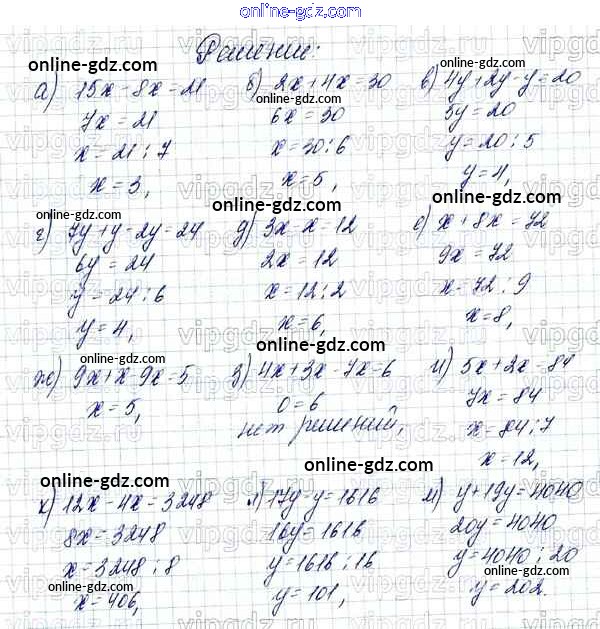 online-gdz.com
Решение:
online-gdz.com online-gdz.com online-gdz.com
а) 15x - 8x = 21 б) 2x + 4x = 30 в) 4y + 2y - y = 20
7x = 21 6x = 30 5y = 20
x = 21 : 7 x = 30 : 6 y = 20 : 5
x = 3, x = 5, y = 4,
online-gdz.com online-gdz.com online-gdz.com
г) 7y + y - 2y = 24 д) 3x - x = 12 е) x + 8x = 72
6y = 24 2x = 12 9x = 72
y = 24 : 6 x = 12 : 2 x = 72 : 9
y = 4, x = 6, x = 8,
online-gdz.com online-gdz.com online-gdz.com
ж) 9x + x - 9x = 5 з) 4x + 3x - 7x = 6 и) 5x + 2x = 84
x = 5, 0 = 6 7x = 84
нет решений, x = 84 : 7
x = 12,
online-gdz.com online-gdz.com online-gdz.com
к) 12x - 4x = 3248 л) 17y - y = 1616 м) y + 19y = 4040
8x = 3248 16y = 1616 20y = 4040
x = 3248 : 8 y = 1616 : 16 y = 4040 : 20
x = 406, y = 101, y = 202.
online-gdz.com online-gdz.com online-gdz.com